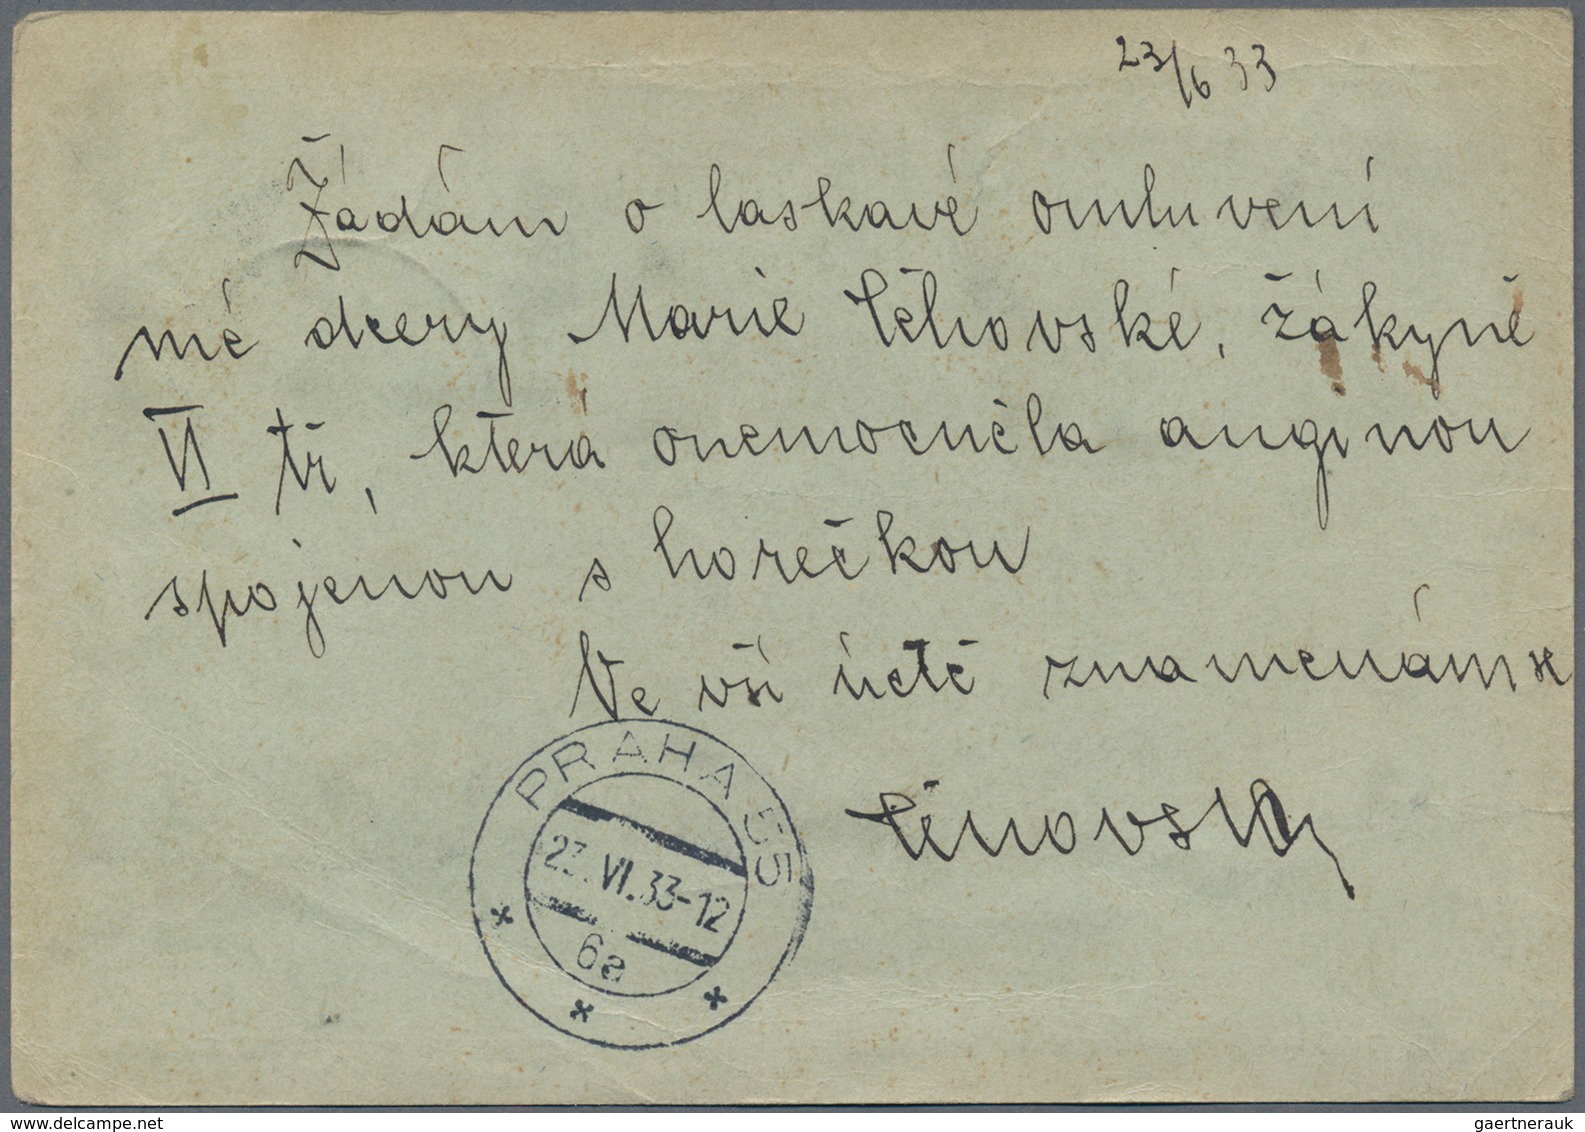 23/6 33
Žádám o laskavé omluvení
mé dcery Marie Těhovské, žákyně
VI tř, která onemocněla anginou
spojenou s horečkou
Ve vší úctě znamenám se
PRAHA 55
23.VI.33-12
6a
www.delcampe.net
gaertnerauk